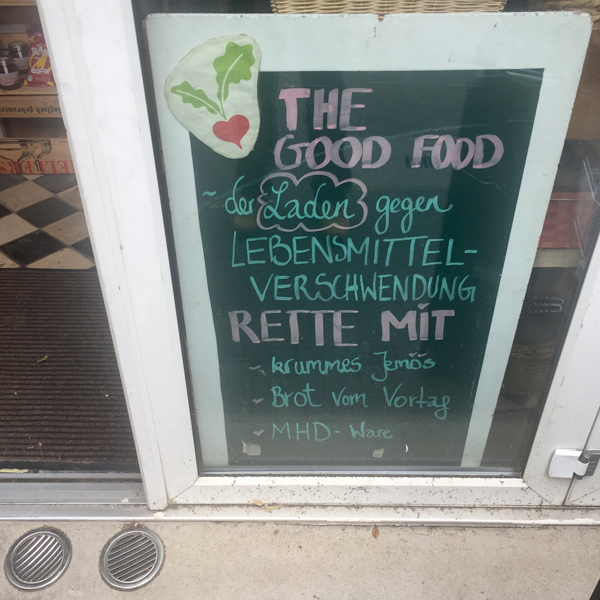 THE
GOOD FOOD
~ der Laden gegen
LEBENSMITTEL-
VERSCHWENDUNG
RETTE MIT
krummes Jemös
Brot vom Vortag
MHD-Ware